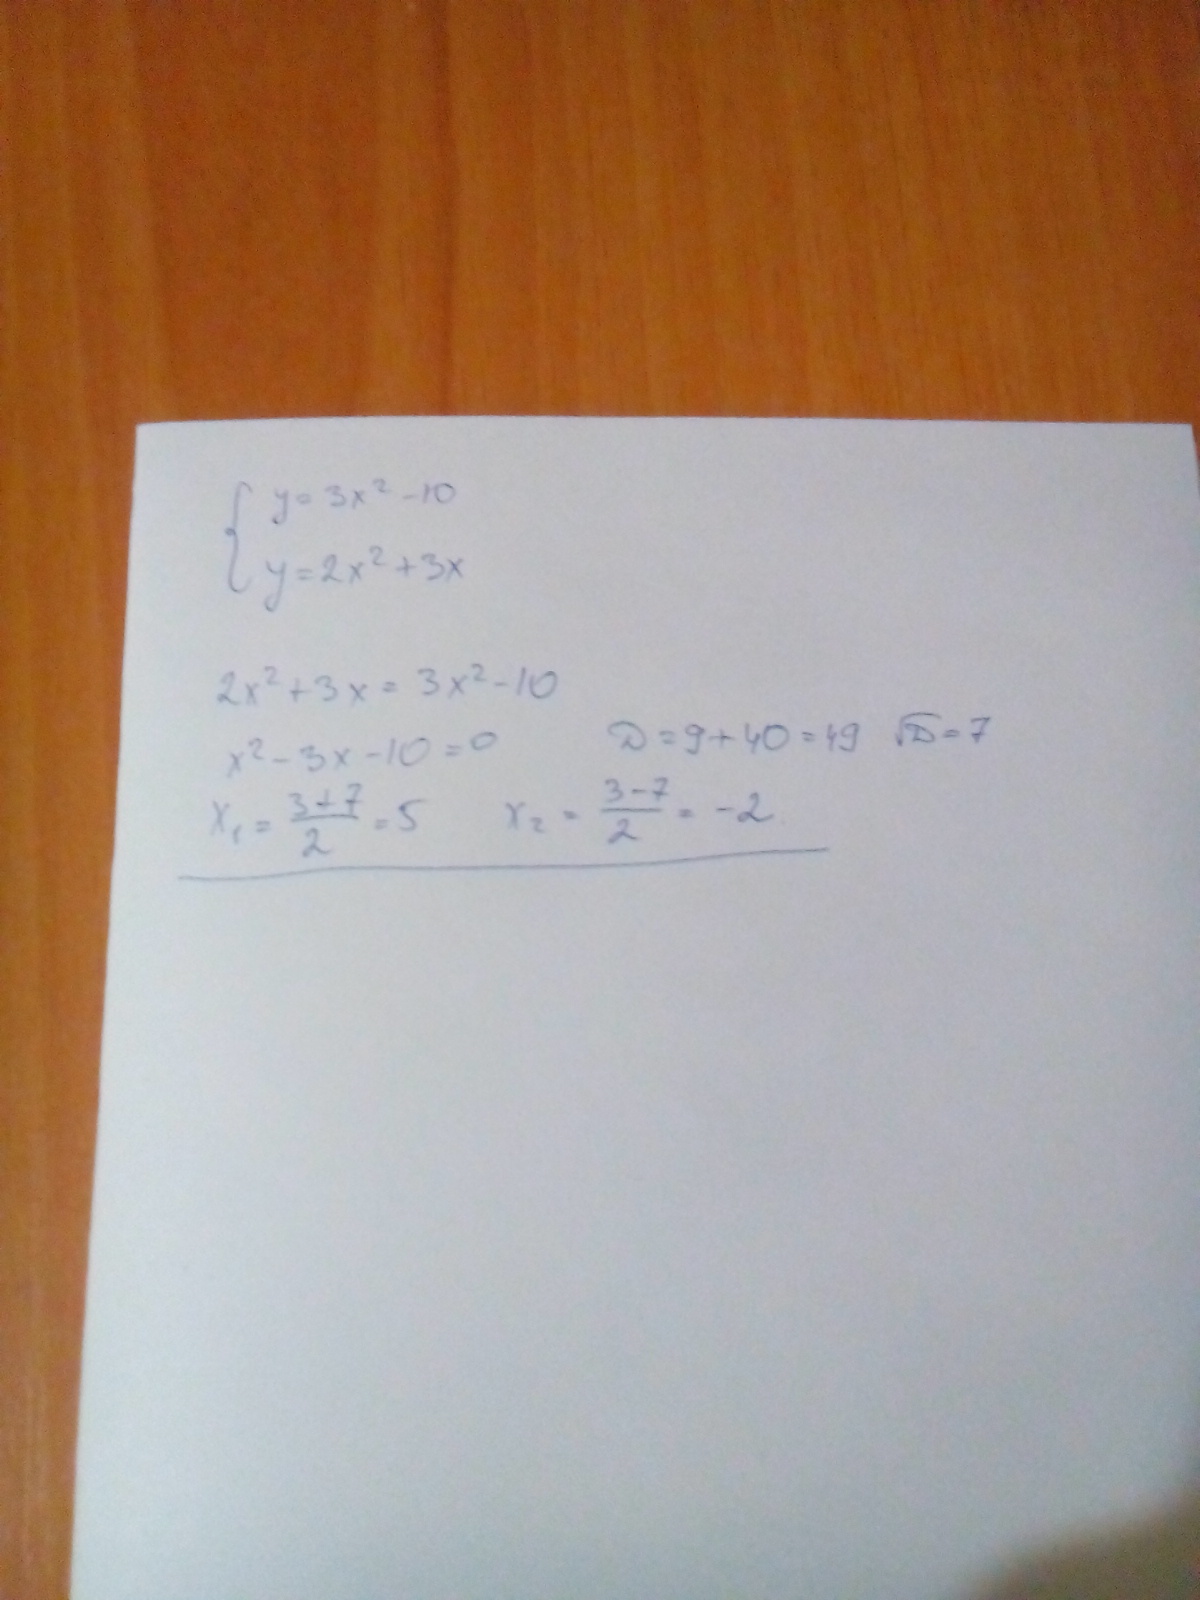 { y = 3x² - 10
y = 2x² + 3x
2x² + 3x = 3x² - 10
x² - 3x - 10 = 0 D = 9 + 40 = 49 √D = 7
x₁ = (3+7)/2 = 5 x₂ = (3-7)/2 = -2